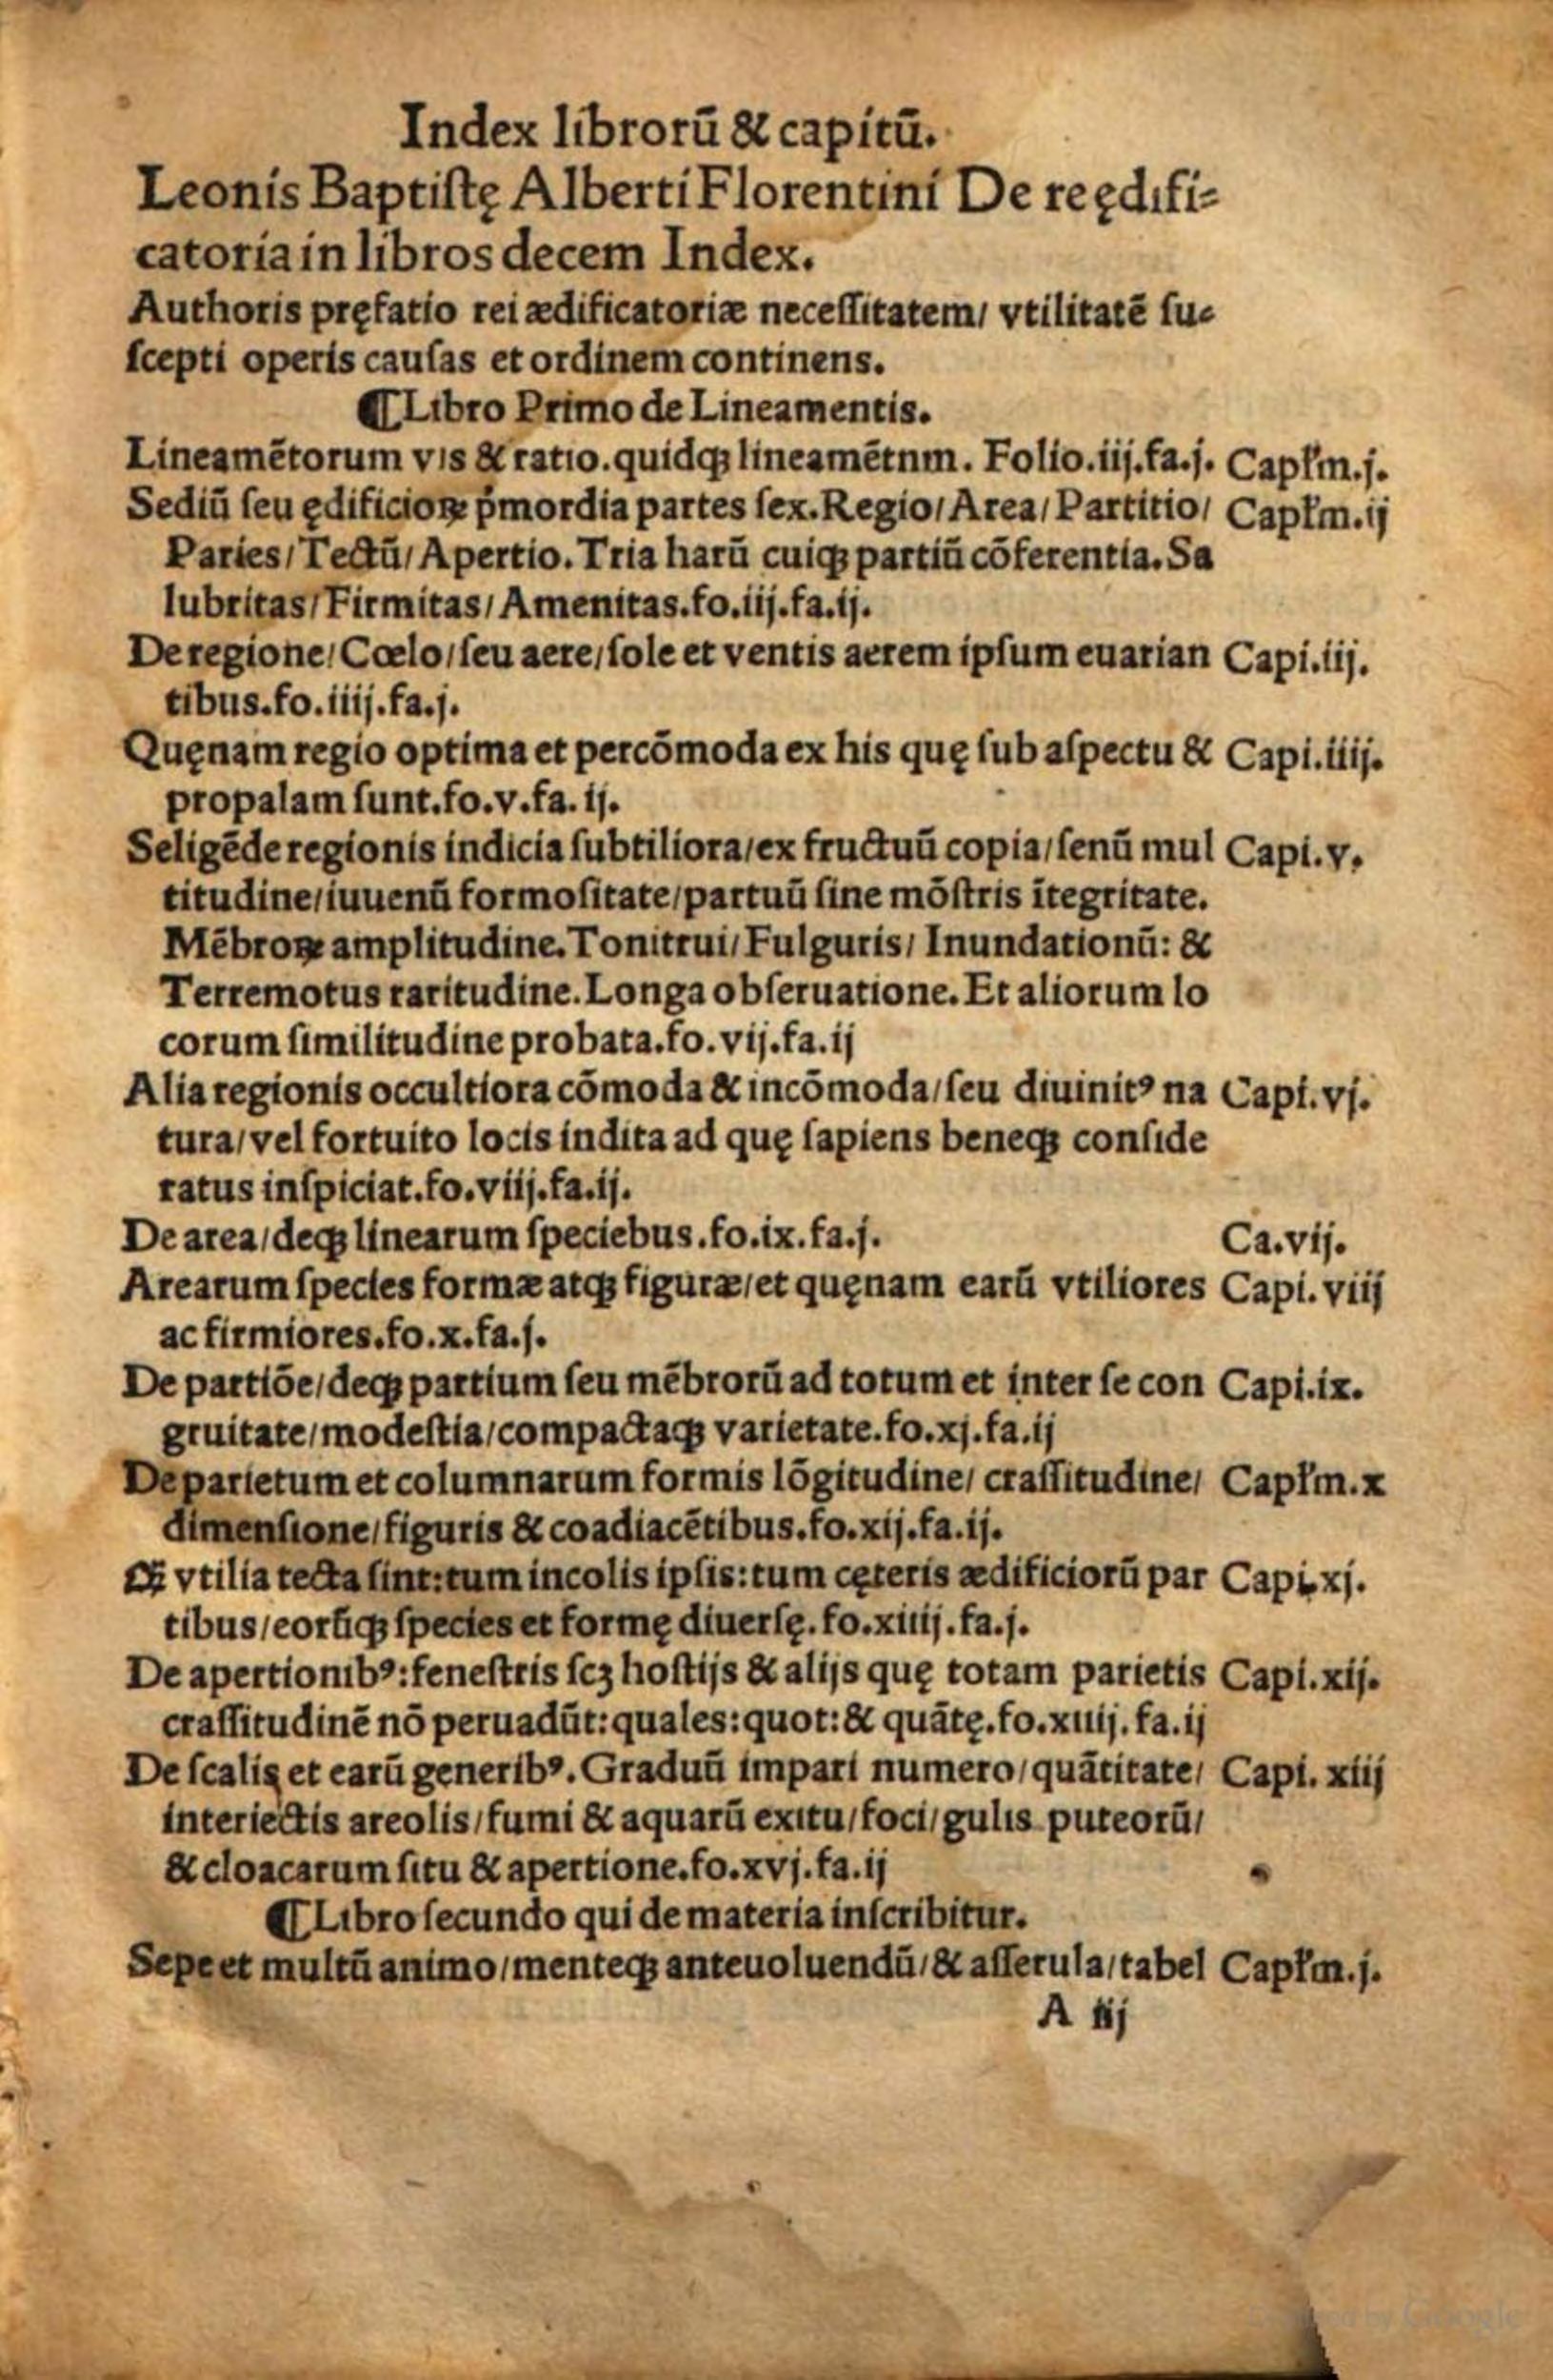 Index librorū & capitū.
Leonis Baptiſtę Alberti Florentini De re ędifi⸗
catoria in libros decem Index.
Authoris pręfatio rei ædificatoriæ neceſſitatem/ vtilitatē ſu⸗
ſcepti operis cauſas et ordinem continens.
¶Libro Primo de Lineamentis.
Lineamētorum vis & ratio.quidqꝫ lineamētnm. Folio.iij.fa.j. Capľm.j.
Sediū ſeu ędificioꝝ p̄mordia partes ſex.Regio/Area/Partitio/ Capľm.ij
Paries/Tectū/Apertio.Tria harū cuiqꝫ partiū cōferentia.Sa
lubritas/Firmitas/Amenitas.fo.iij.fa.ij.
De regione/Cœlo/ſeu aere/ſole et ventis aerem ipſum euarian Capi.iij.
tibus.fo.iiij.fa.j.
Quęnam regio optima et percōmoda ex his quę ſub aſpectu & Capi.iiij.
propalam ſunt.fo.v.fa.ij.
Seligēde regionis indicia ſubtiliora/ex fructuū copia/ſenū mul Capi.v.
titudine/iuuenū formoſitate/partuū ſine mōſtris ītegritate.
Mēbroꝝ amplitudine.Tonitrui/Fulguris/ Inundationū: &
Terremotus raritudine.Longa obſeruatione.Et aliorum lo
corum ſimilitudine probata.fo.vij.fa.ij
Alia regionis occultiora cōmoda & incōmoda/ſeu diuinitꝰ na Capi.vj.
tura/vel fortuito locis indita ad quę ſapiens beneqꝫ conſide
ratus inſpiciat.fo.viij.fa.ij.
De area/deqꝫ linearum ſpeciebus.fo.ix.fa.j. Ca.vij.
Arearum ſpecies formæ atqꝫ figuræ/et quęnam earū vtiliores Capi.viij
ac firmiores.fo.x.fa.j.
De partiōe/deqꝫ partium ſeu mēbrorū ad totum et inter ſe con Capi.ix.
gruitate/modeſtia/compactaqꝫ varietate.fo.xj.fa.ij
De parietum et columnarum formis lōgitudine/ craſſitudine/ Capľm.x
dimenſione/figuris & coadiacētibus.fo.xij.fa.ij.
Q̄ vtilia tecta ſint:tum incolis ipſis:tum cęteris ædificiorū par Capi.xj.
tibus/eorūqꝫ ſpecies et formę diuerſę.fo.xiiij.fa.j.
De apertionibꝰ:feneſtris ſcꝫ hoſtijs & alijs quę totam parietis Capi.xij.
craſſitudinē nō peruadūt:quales:quot:& quātę.fo.xiiij.fa.ij
De ſcalis et earū generibꝰ.Graduū impari numero/quātitate/ Capi.xiij
interiectis areolis/fumi & aquarū exitu/foci/gulis puteorū/
& cloacarum ſitu & apertione.fo.xvj.fa.ij
¶Libro ſecundo qui de materia inſcribitur.
Sepe et multū animo/menteqꝫ anteuoluendū/& aſſerula/tabel Capľm.j.
A iij
Digitized by Google